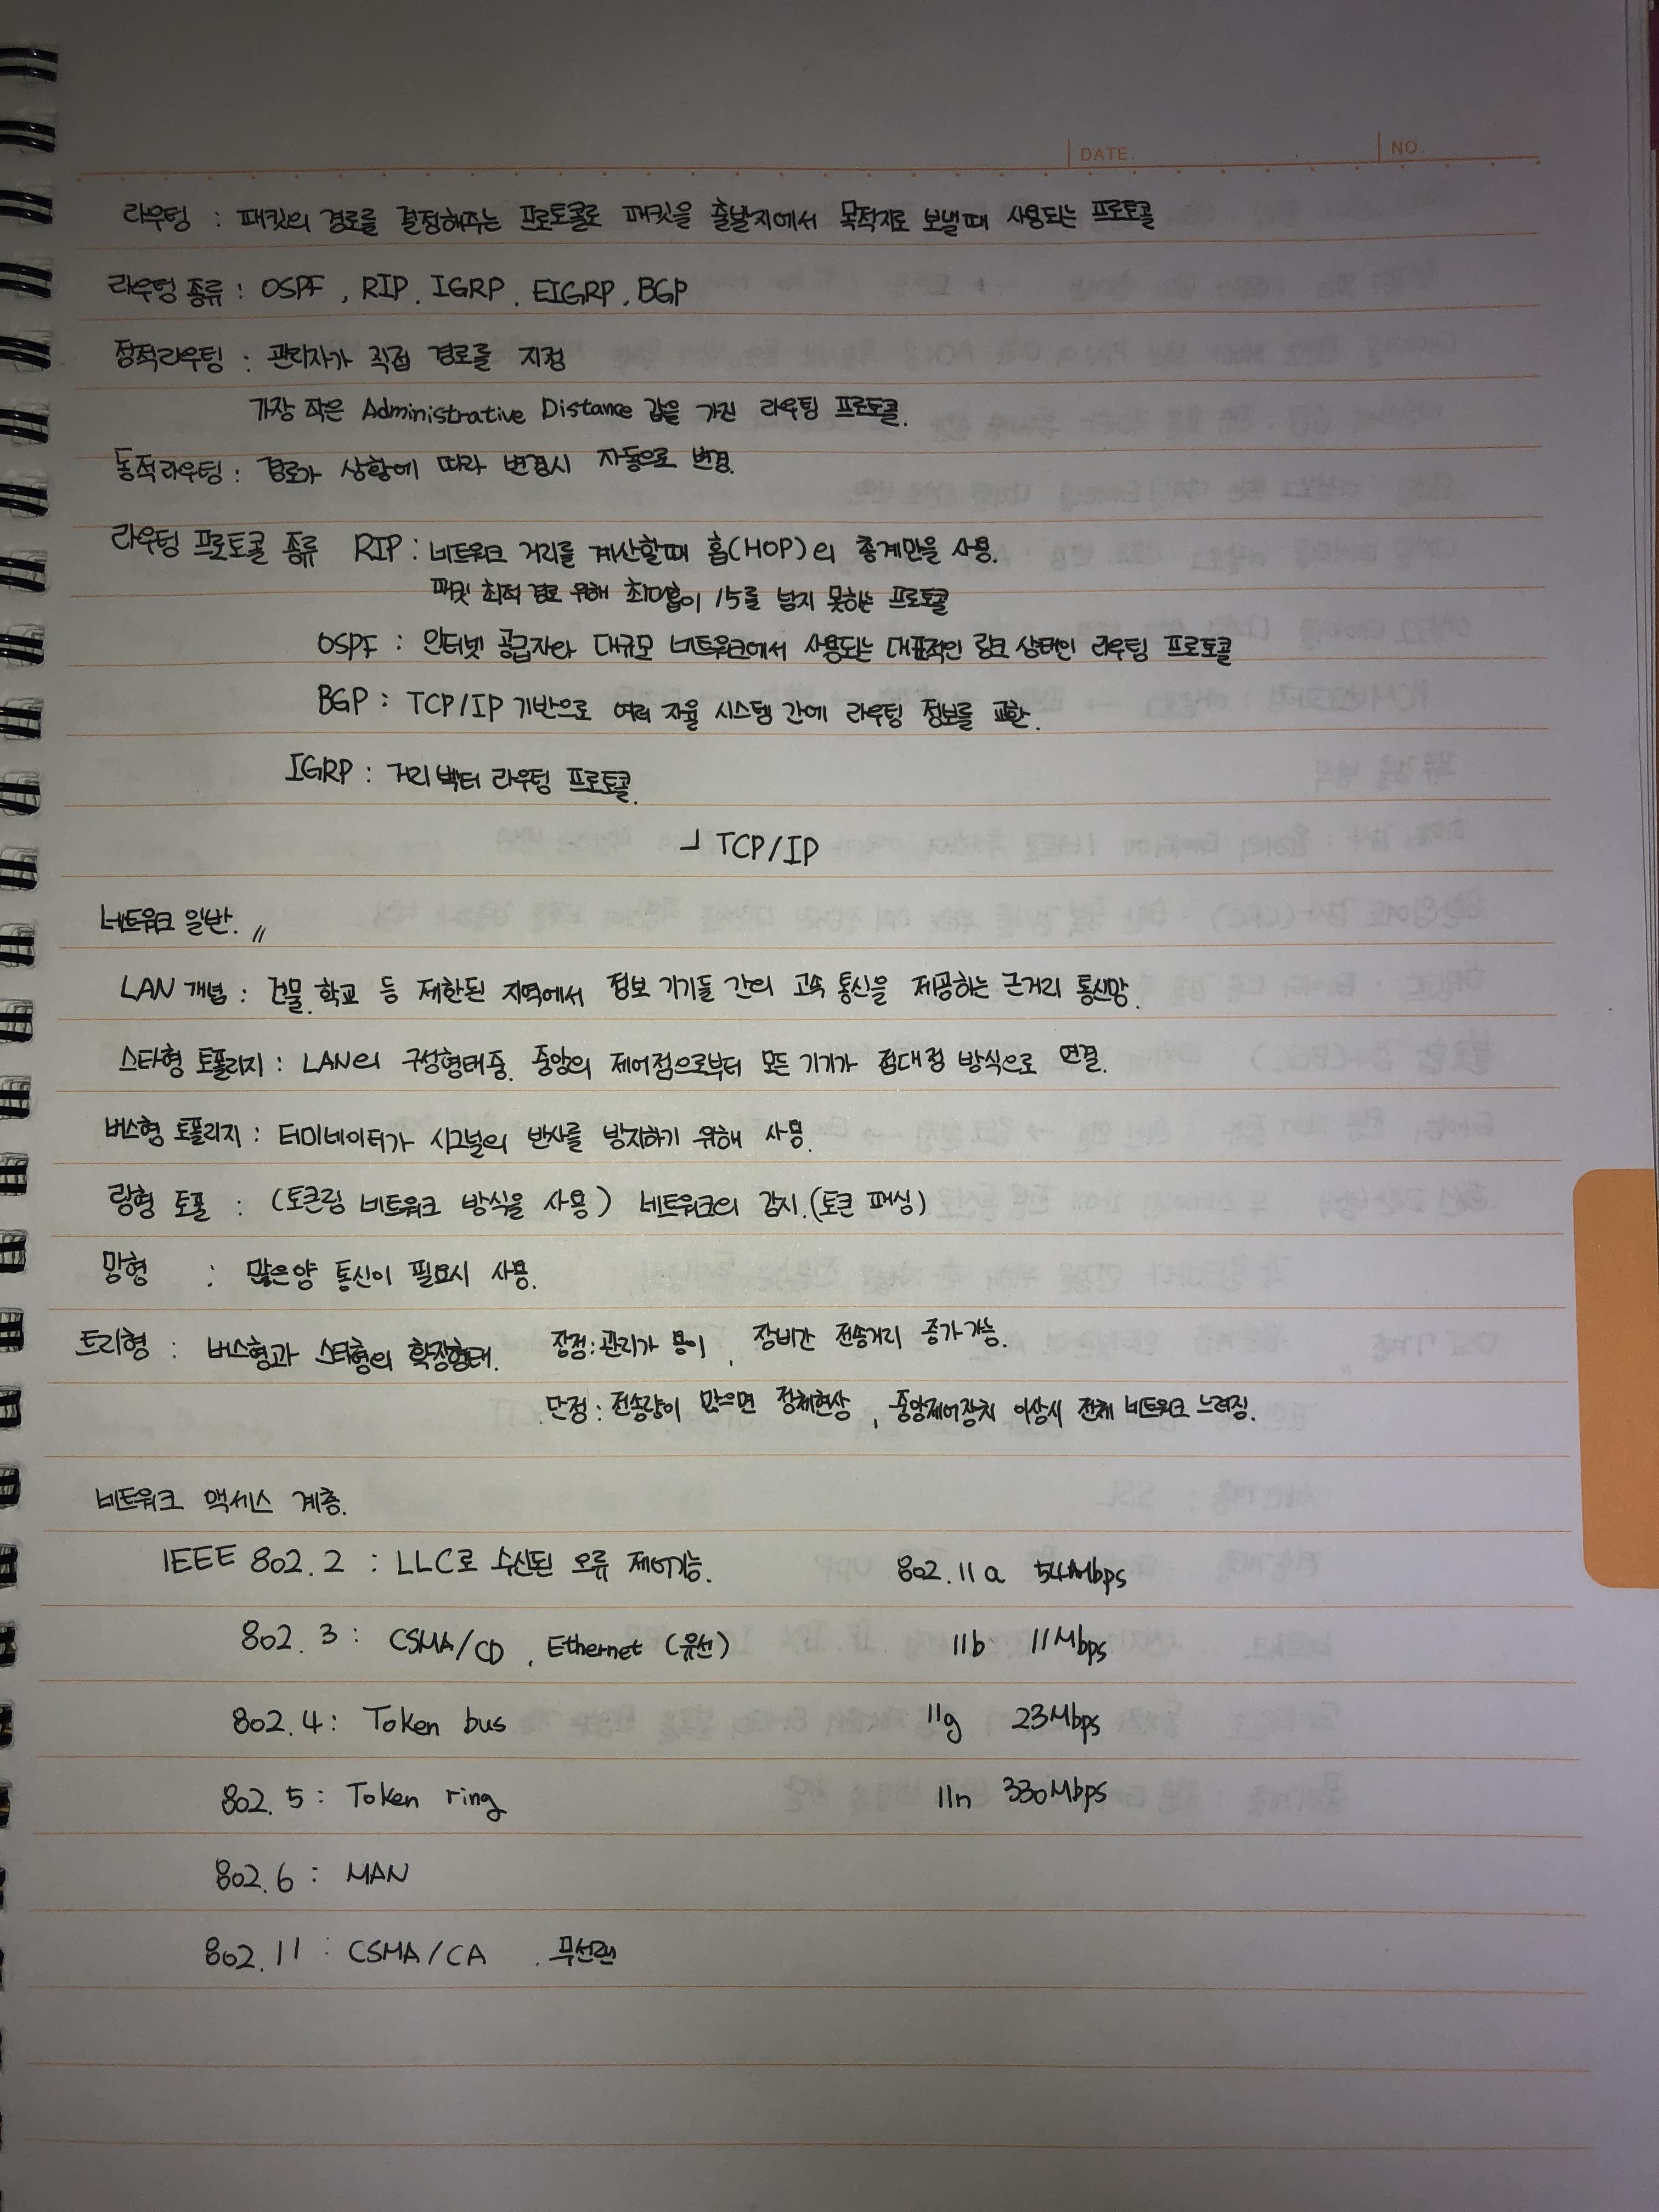 DATE.
NO.
라우팅 : 패킷의 경로를 결정해주는 프로토콜로 패킷을 출발지에서 목적지로 보낼때 사용되는 프로토콜
라우팅 종류 : OSPF, RIP, IGRP, EIGRP, BGP
정적라우팅 : 관리자가 직접 경로를 지정
가장 작은 Administrative Distance 값을 가진 라우팅 프로토콜.
동적라우팅 : 경로가 상황에 따라 변경시 자동으로 변경.
라우팅 프로토콜 종류 RIP : 네트워크 거리를 계산할때 홉(HOP)의 총계만을 사용.
패킷 최적 경로 위해 최대홉이 15를 넘지 못하는 프로토콜
OSPF : 인터넷 공급자와 대규모 네트워크에서 사용되는 대표적인 링크 상태인 라우팅 프로토콜
BGP : TCP/IP 기반으로 여러 자율 시스템 간에 라우팅 정보를 교환.
IGRP : 거리 벡터 라우팅 프로토콜.
┘ TCP/IP
네트워크 일반. //
LAN 개념 : 건물, 학교 등 제한된 지역에서 정보 기기들 간의 고속 통신을 제공하는 근거리 통신망.
스타형 토폴리지 : LAN의 구성형태중. 중앙의 제어점으로부터 모든 기기가 점대점 방식으로 연결.
버스형 토폴리지 : 터미네이터가 시그널의 반사를 방지하기 위해 사용.
링형 토폴 : (토큰링 네트워크 방식을 사용) 네트워크의 감시.(토큰 패싱)
망형 : 많은양 통신이 필요시 사용.
트리형 : 버스형과 스타형의 확장형태. 장점 : 관리가 용이, 장비간 전송거리 증가 가능.
단점 : 전송량이 많으면 정체현상, 중앙제어장치 이상시 전체 네트워크 느려짐.
네트워크 액세스 계층.
IEEE 802.2 : LLC로 수신된 오류 제어기능. 802.11a 54Mbps
802.3 : CSMA/CD, Ethernet (유선) 11b 11Mbps
802.4 : Token bus 11g 23Mbps
802.5 : Token ring 11n 330Mbps
802.6 : MAN
802.11 : CSMA/CA . 무선랜